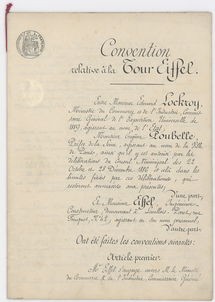 Convention
relative à la Tour Eiffel.
Entre Monsieur Edouard Lockroy,
Ministre du Commerce et de l'Industrie, Commissaire
Général de l'Exposition Universelle de
1889, agissant au nom de l'Etat
Monsieur Eugène Poubelle
Préfet de la Seine, agissant au nom de la Ville
de Paris, ainsi qu'il y est autorisé par les
délibérations du Conseil Municipal des 22
Octobre et 28 Décembre 1886 et dans les
limites fixées par ces délibérations, qui
resteront annexées aux présentes,
D'une part,
Et Monsieur Eiffel, Ingénieur-
Constructeur, demeurant à Levallois-Perret, rue
Fouquet, N° 42,
D'autre part,
Ont été faites les conventions suivantes:
Article premier.
Mr Eiffel s'engage envers M. le Ministre
du Commerce et de l'Industrie, Commissaire Général